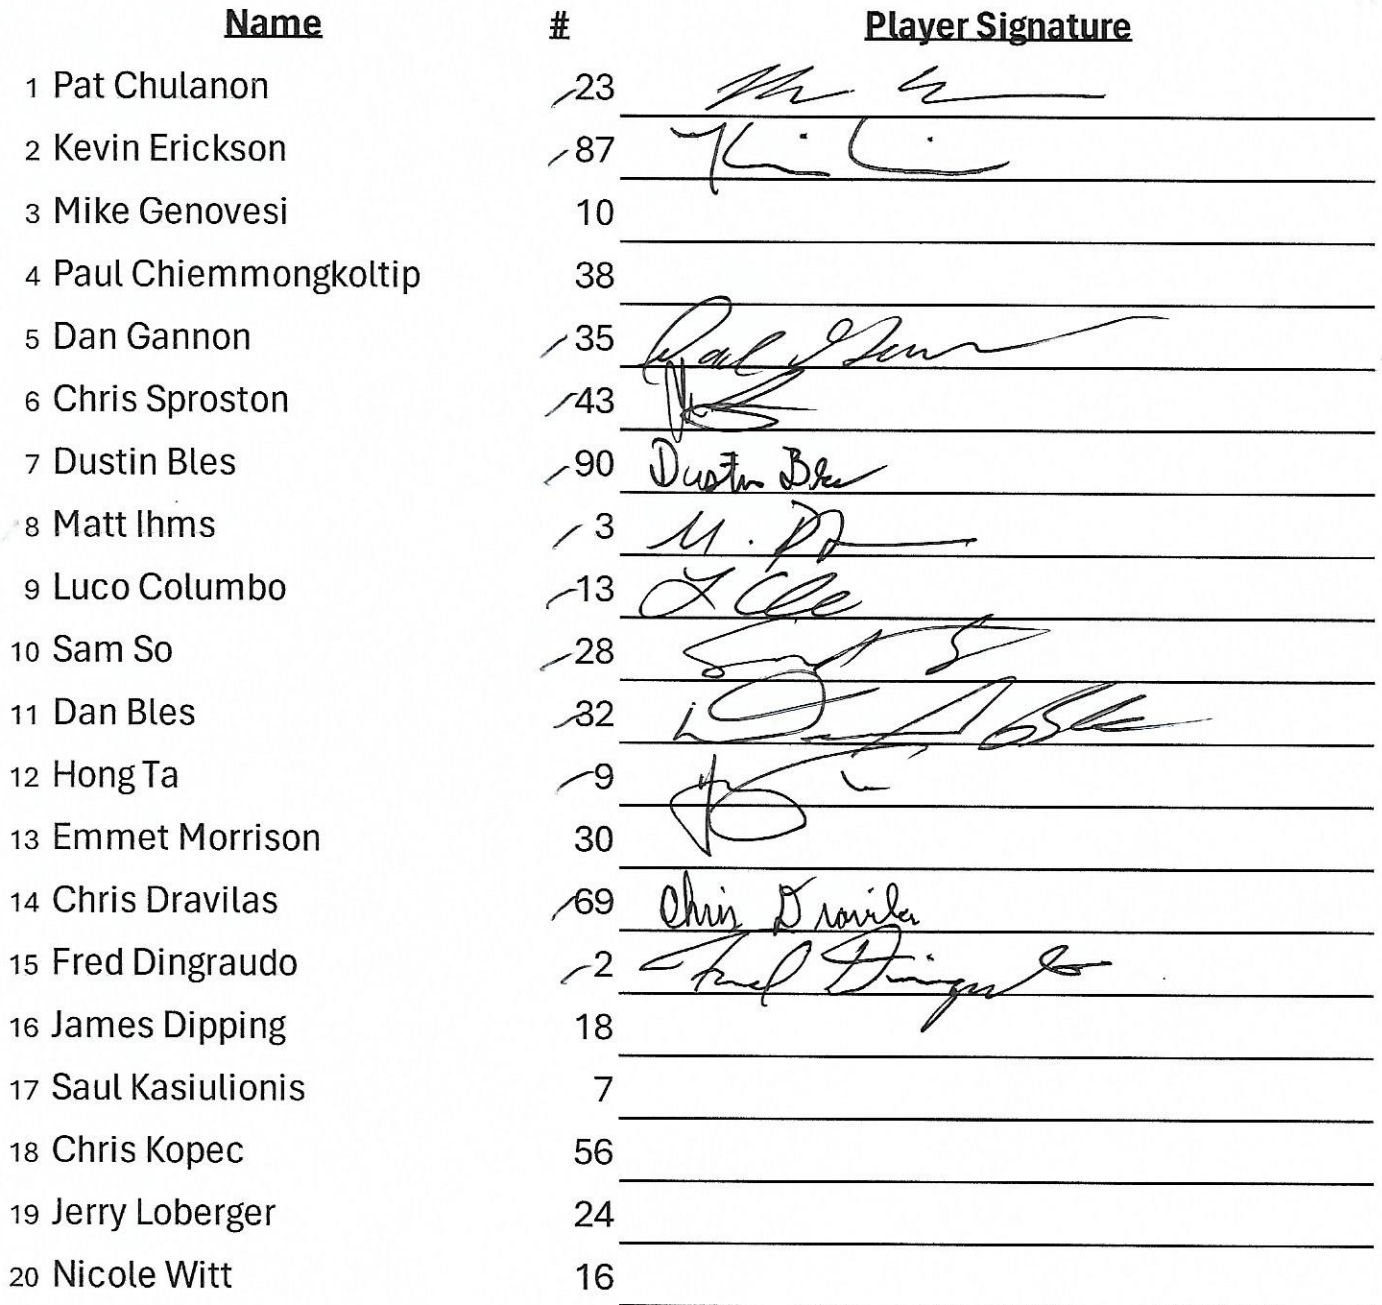 Name # Player Signature
1 Pat Chulanon 23
2 Kevin Erickson 87
3 Mike Genovesi 10
4 Paul Chiemmongkoltip 38
5 Dan Gannon 35
6 Chris Sproston 43
7 Dustin Bles 90 Dustin Bles
8 Matt Ihms 3
9 Luco Columbo 13
10 Sam So 28
11 Dan Bles 32
12 Hong Ta 9
13 Emmet Morrison 30
14 Chris Dravilas 69 Chris Dravilas
15 Fred Dingraudo 2
16 James Dipping 18
17 Saul Kasiulionis 7
18 Chris Kopec 56
19 Jerry Loberger 24
20 Nicole Witt 16